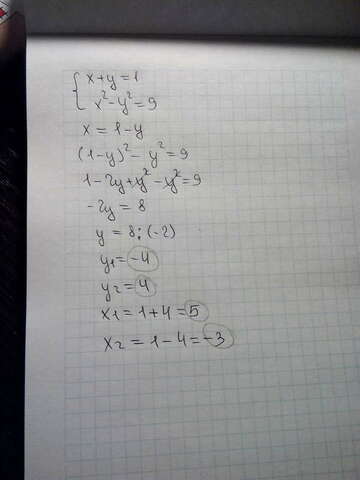 { x+y=1
x²-y²=9
x = 1-y
(1-y)² - y² = 9
1-2y+y²-y²=9
-2y = 8
y = 8:(-2)
y1 = -4
y2 = 4
x1 = 1+4 = 5
x2 = 1-4 = -3